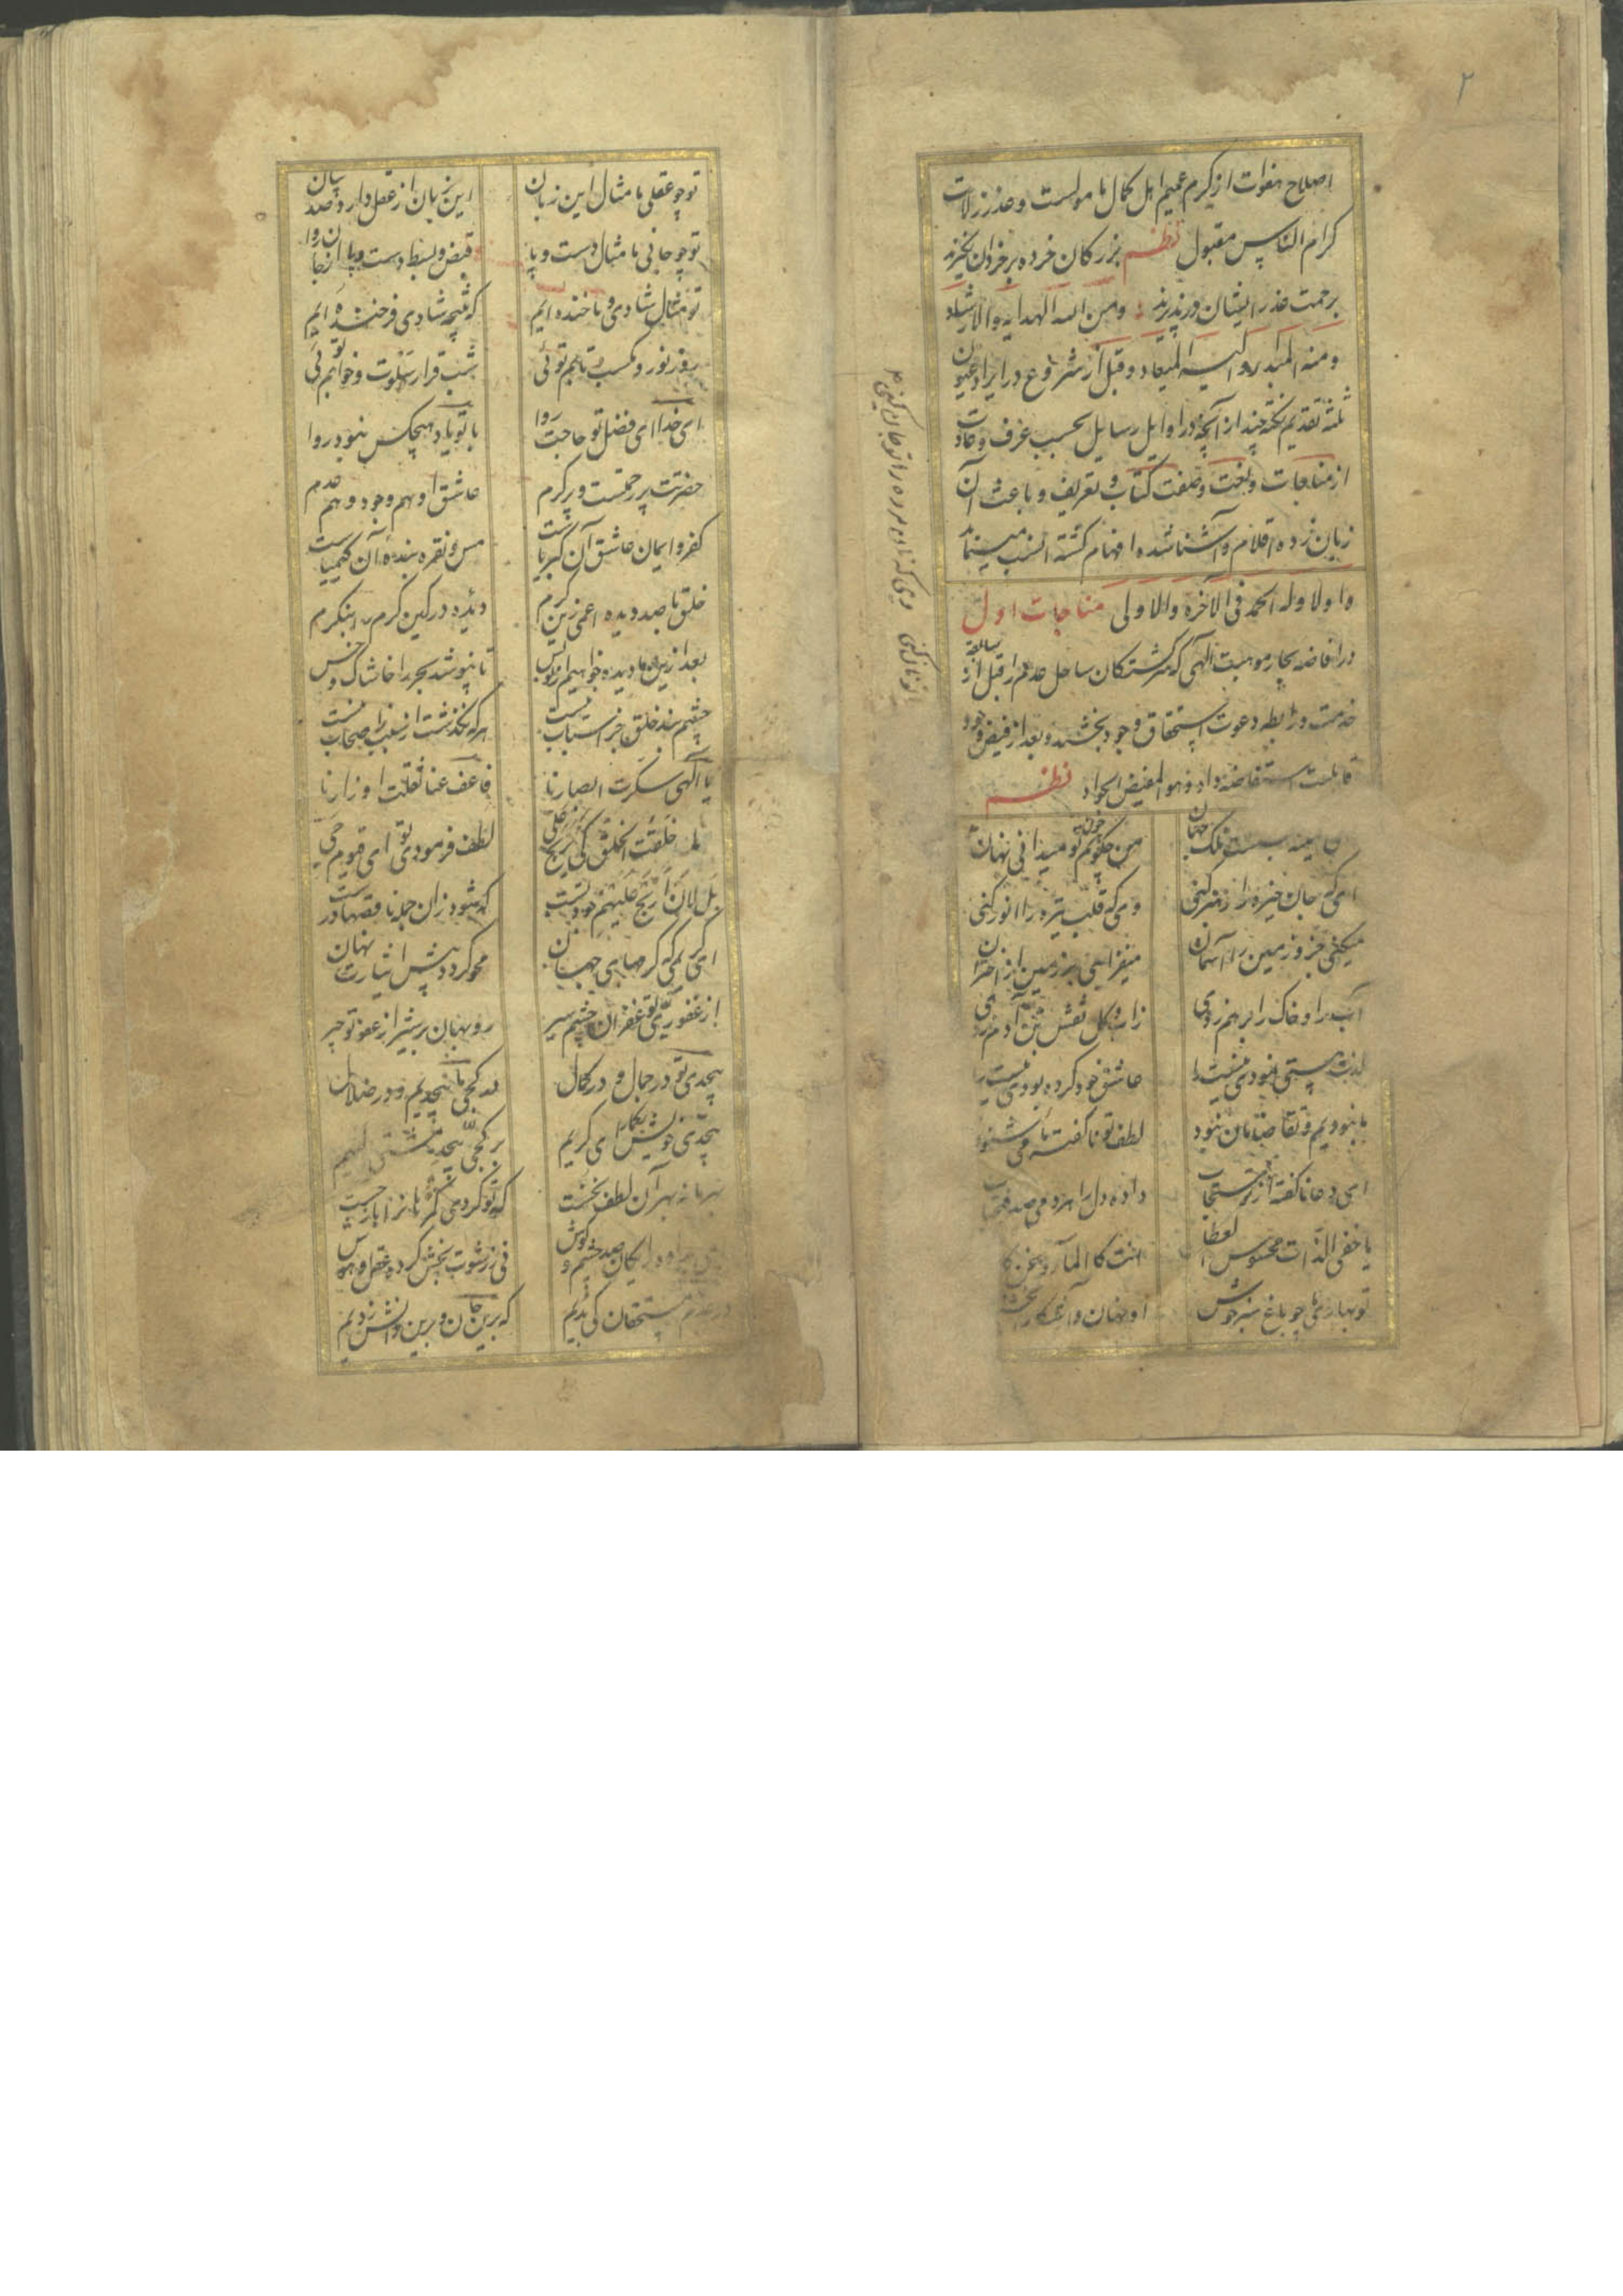 ۲
اصلاح هفوات از کرم عمیم اهل کمال مامولست و عذر زلات
کرام الناس مقبول نظم بزرکان خرده بر خردان نکیرند
برحمت عذر ایشان درپذیرند ومن الله الهدایه والارشاد
ومنه المبدء والیه المیعاد و قبل از شروع در ایراد عیون
ثلثه تقدیم نکته چند از آنچه در اوایل رسایل بحسب عرف و عادت
از مناجات و نعت وصفت کتاب و تعریف و باعث آن
زبان زده اقلام و آشنا شده افهام کشته انسب مینماید
واولا وله الحمد فی الآخرة والاولی مناجات اول
در افاضه بحار موهبت الهی که سرکشتکان ساحل عدم را قبل از سابقه
خدمت و رابطه دعوت استحقاق وجود بخشند و بعد از فیض وجود
قابلیت استفاضه داد وهو المفیض الجواد نظم
من چکویم چون تو میدانی نهان
ای که جان خیره را رهبر کنی وی که قلب تیره را انور کنی
میکنی جزو زمین را آسمان میفزایی بر زمین از اختران
آب را و خاک را برهم زدی زاب و کل نقش تن آدم زدی
لذت هستی نمودی نیست را عاشق خود کرده بودی نیست را
ما نبودیم و تقاضامان نبود لطف تو ناکفته ما می شنود
ای دعا ناکفته از تو مستجاب داده دل را هر دمی صد فتح باب
یا خفی الذات محسوس العطا انت کالماء ونحن کا
تو بهاری ما چو باغ سبز خوش او نهان و آشکارا بخشش
وی که نان مرده را تو جان کنی
تو چو عقلی ما مثال این زبان این زبان از عقل دارد صد بیان
تو چو جانی ما مثال دست و پا قبض و بسط دست و پا از جان روا
تو مثال شادی و ما خنده ایم که نتیجه شادی فرخنده ایم
روز نور و مکسب و تابم توئی شب قرار و سلوت و خوابم توئی
ای خدا ای فضل تو حاجت روا با تو یاد هیچکس نبود روا
حضرتت پر رحمتست و پر کرم عاشق او هم وجود و هم عدم
کفر و ایمان عاشق آن کبریاست مس و نقره بنده آن کیمیاست
خلق ما صد دیده اعمی زین کرم دیده درکین کرم را بنکرم
بعد ازین ما دیده خواهیم از تو بس تا نپوشد بحر را خاشاک و خس
چشم بند خلق جز اسباب نیست هر که بکذشت از سبب ز اصحاب نیست
یا الهی سکرت ابصارنا فاعف عنا ثقلت اوزارنا
لم خلقت الخلق کی یربح علی لطف فرمودی تو ای قیوم حی
بل لان اربح علیهم جود تست که شود زان جمله ناقصها درست
ای کریمی که کرمهای جهان محو کردد پیش ایثارت نهان
از غفوری تو غفران چشم سیر روبهان بر شیر از عفو تو چیر
بیحدی تو در جمال و در کمال در کجی ما بیحدیم و در ضلال
بیحدی خویش بکمار ای کریم بر کجی بیحد مشتی لئیم
بهر آن لطف نخست که تو کردی کمرهان را باز جست
رایکان صد چشم و کوش نی ز رشوت بخش کرده عقل و هوش
در عدم مستحقان کی بدیم که برین جان و برین دانش زدیم